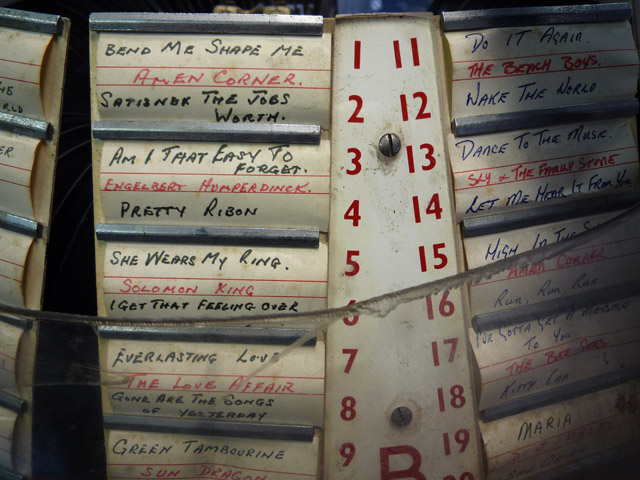 BEND ME SHAPE ME
AMEN CORNER.
SATISNEK THE JOBS
WORTH.
AM I THAT EASY TO
FORGET.
ENGELBERT HUMPERDINCK.
PRETTY RIBON
SHE WEARS MY RING.
SOLOMON KING
I GET THAT FEELING OVER
EVERLASTING LOVE
THE LOVE AFFAIR
GONE ARE THE SONGS
OF YESTERDAY
GREEN TAMBOURINE
SUN DRAGON
1 11
2 12
3 13
4 14
5 15
6 16
7 17
8 18
9 19
B
DO IT AGAIN.
THE BEACH BOYS.
WAKE THE WORLD.
DANCE TO THE MUSIC.
SLY & THE FAMILY STONE
LET ME HEAR IT FROM YOU
HIGH IN THE
AMEN CORNER
RUN, RUN, RUN
I'VE GOTTA GET A MESSAGE
TO YOU
THE BEE GEES
KITTY CAN
MARIA